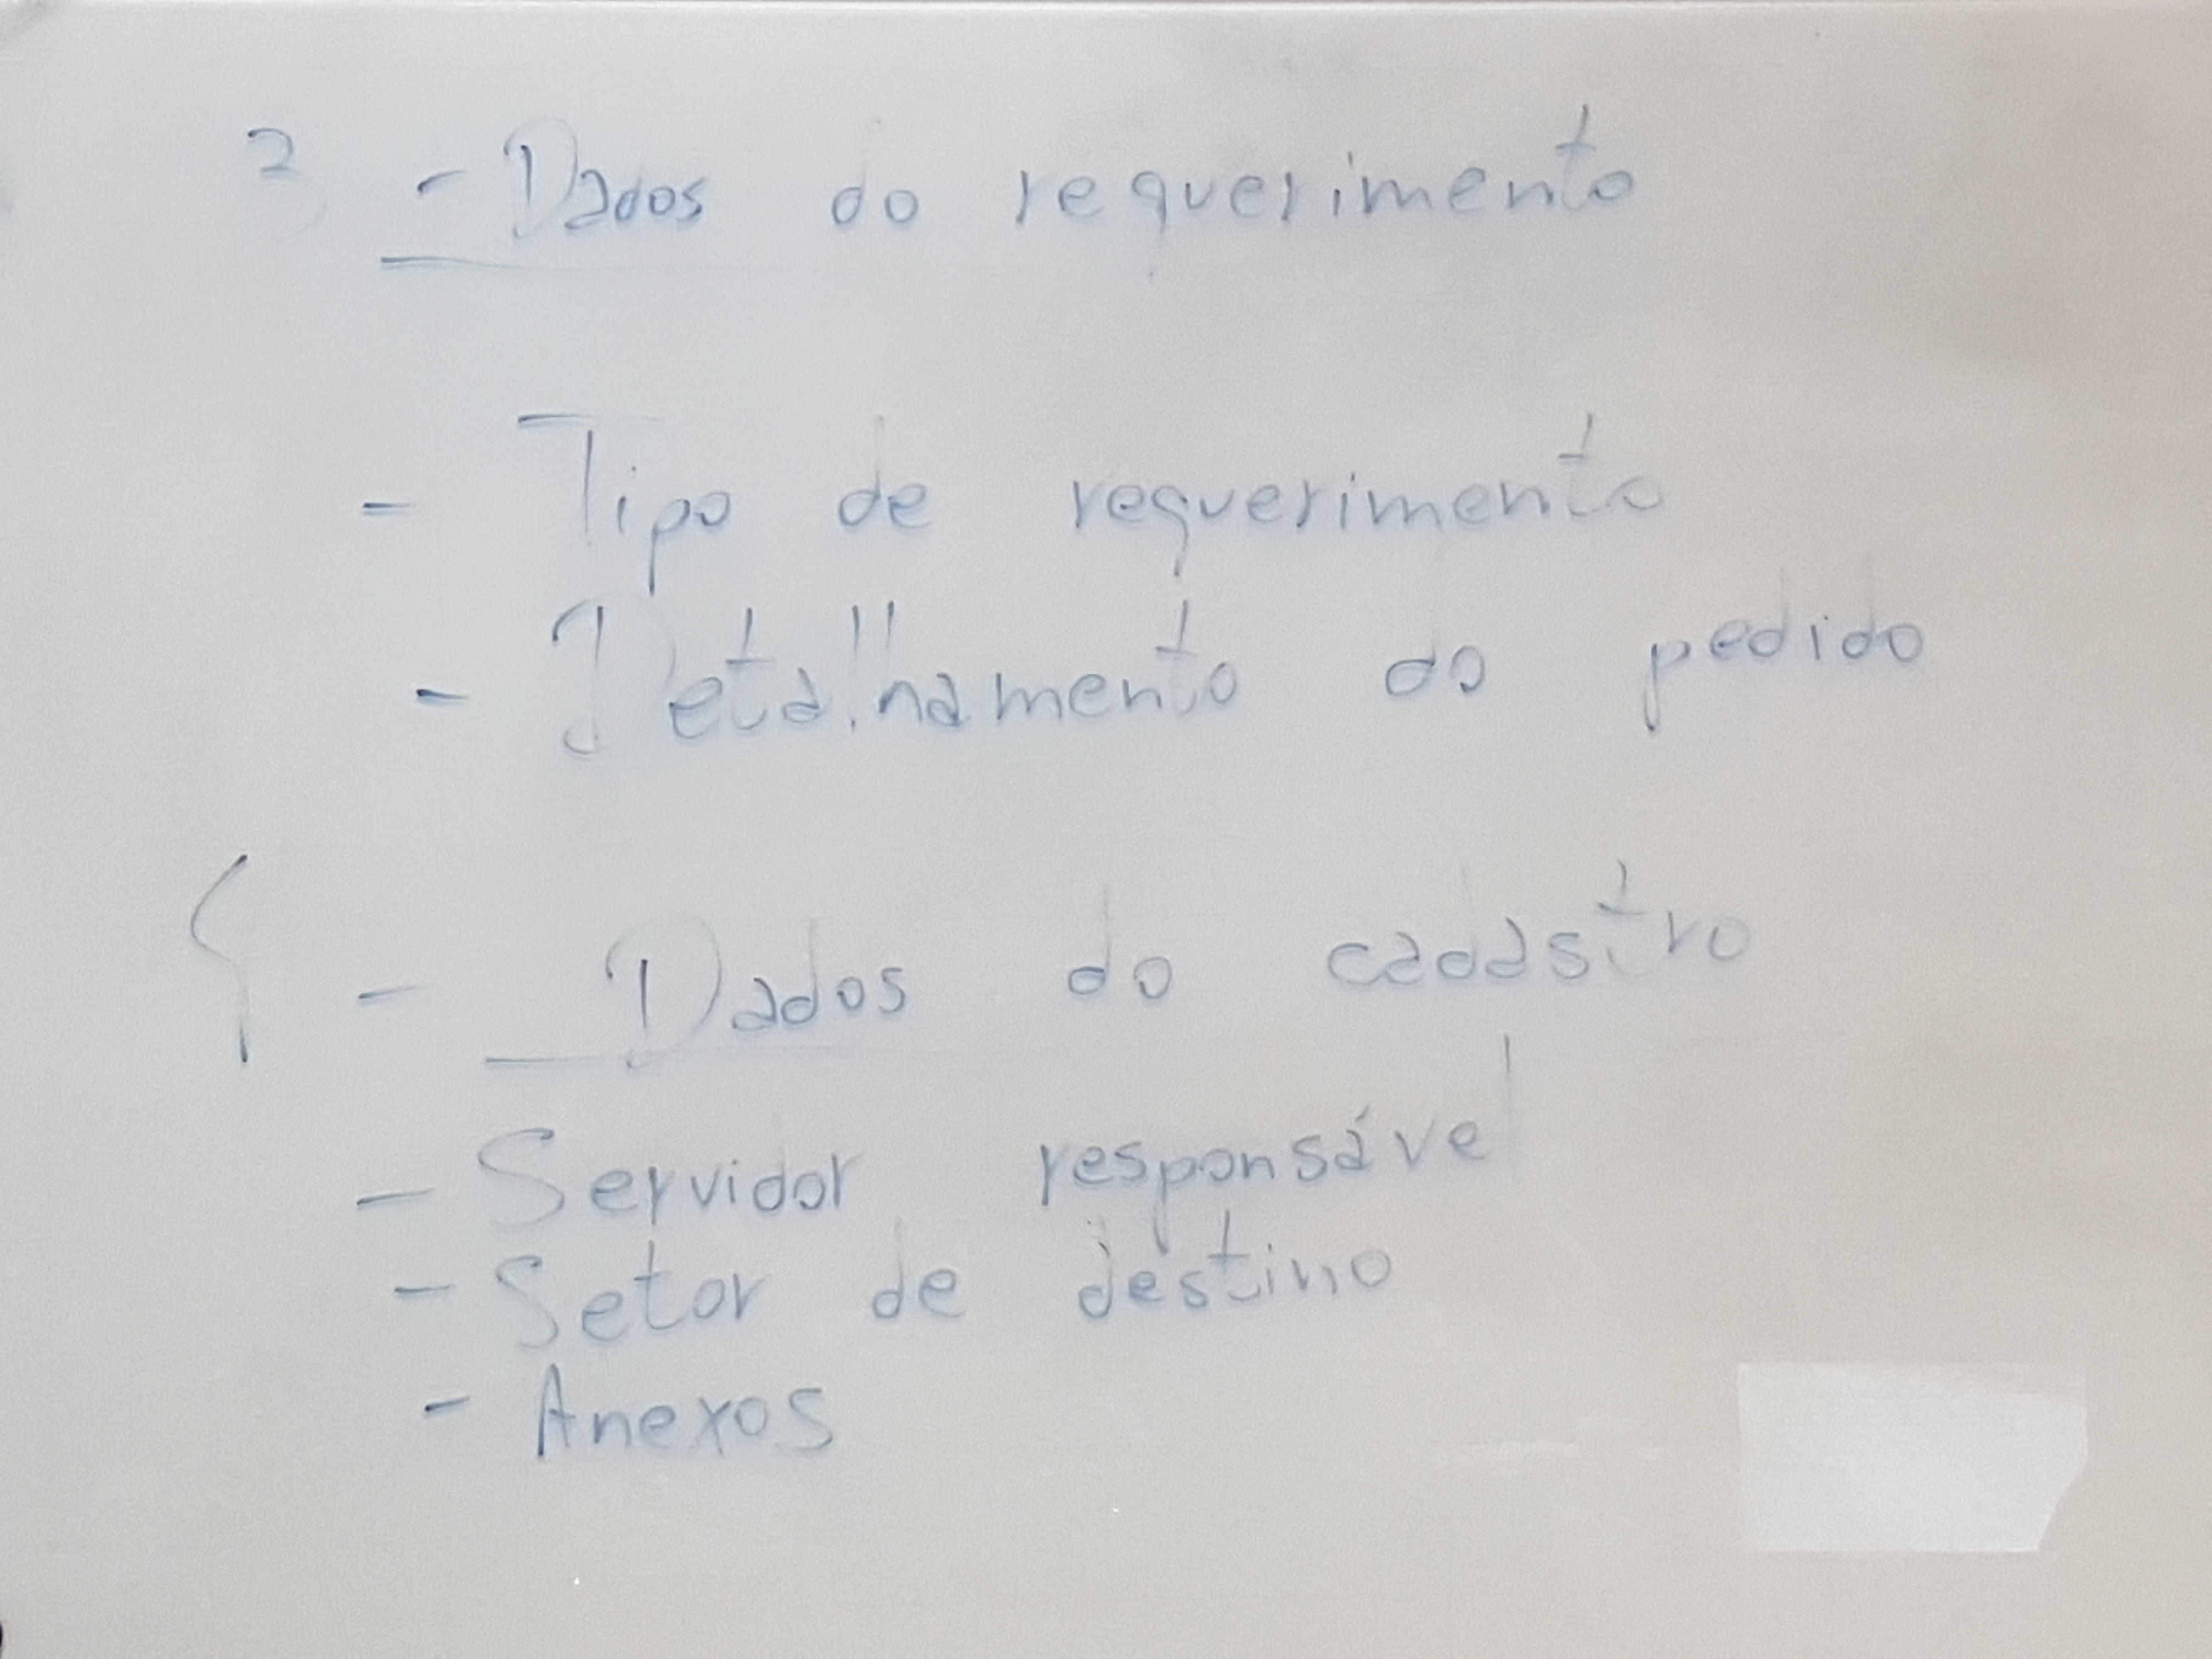 3 - Dados do requerimento
- Tipo de requerimento
- Detalhamento do pedido
4 - Dados do cadastro
- Servidor responsável
- Setor de destino
- Anexos